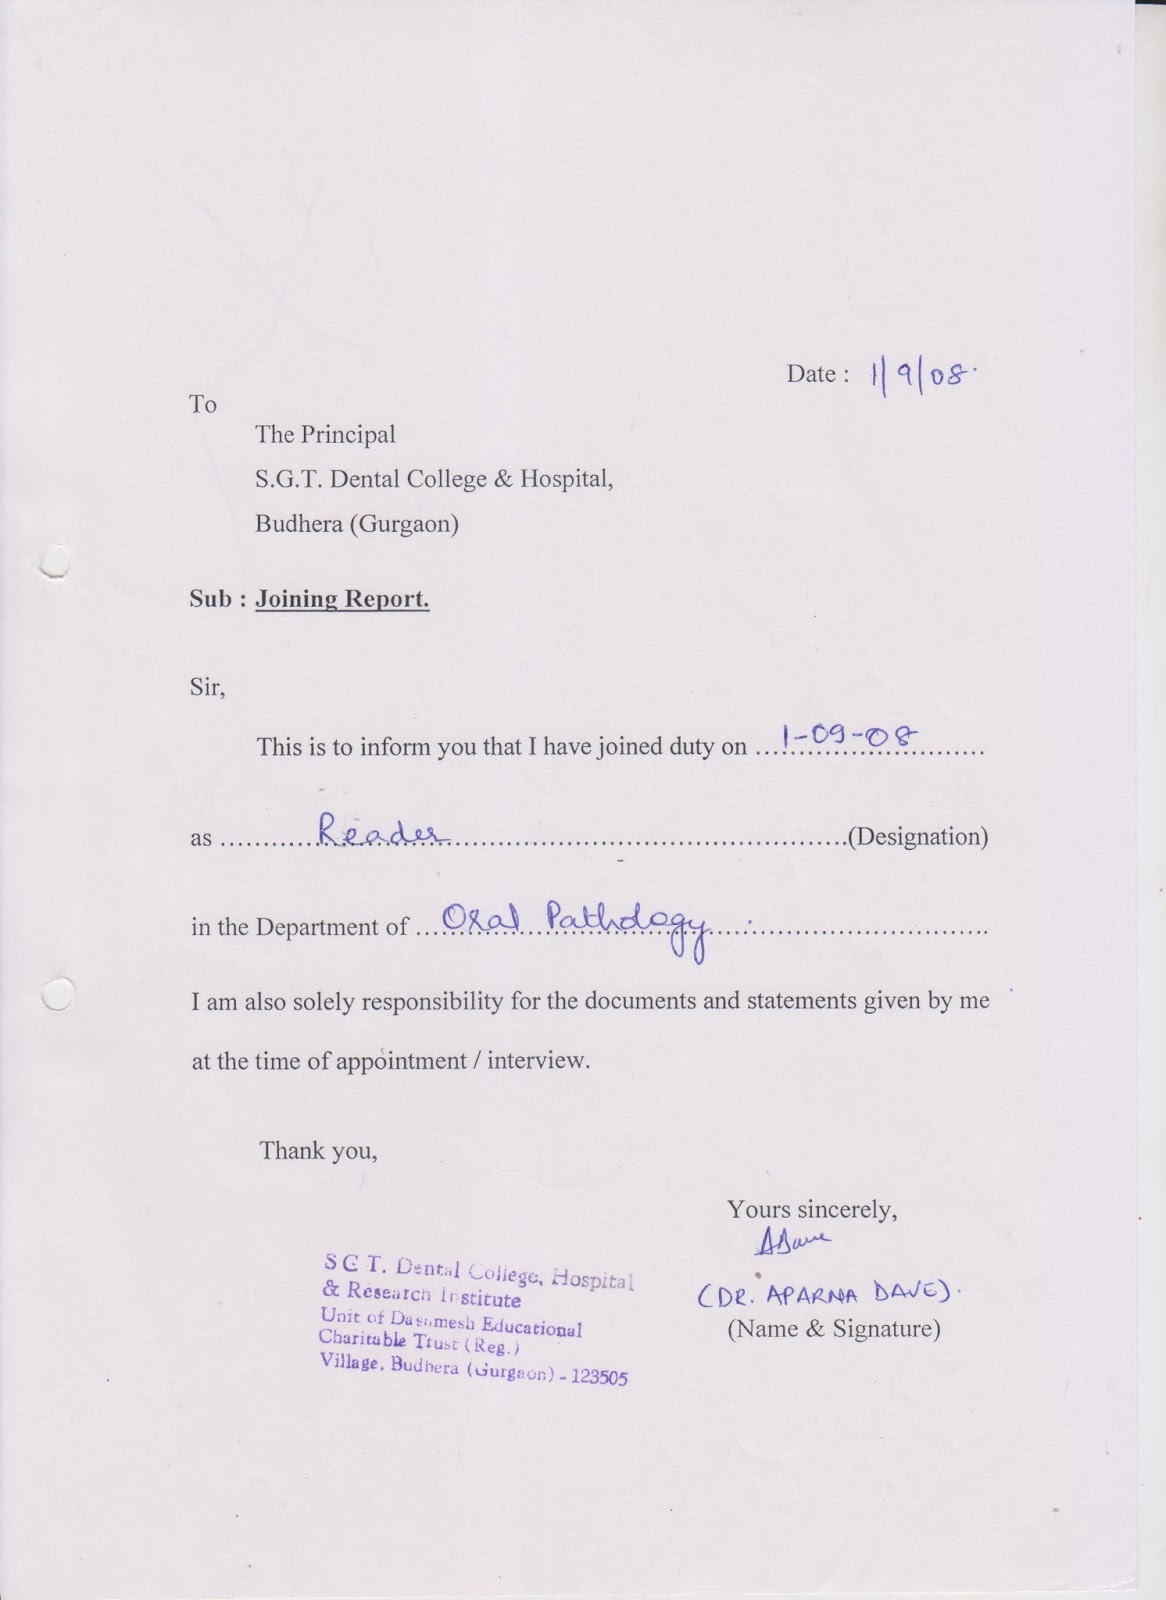 Date : 1/9/08.
To
The Principal
S.G.T. Dental College & Hospital,
Budhera (Gurgaon)
Sub : Joining Report.
Sir,
This is to inform you that I have joined duty on ....1-09-08..........
as ............Reader............................................................(Designation)
in the Department of ...Oral Pathology........................................
I am also solely responsibility for the documents and statements given by me
at the time of appointment / interview.
Thank you,
Yours sincerely,
ADave
(DR. APARNA DAVE).
(Name & Signature)
S G T. Dental College, Hospital
& Research Institute
Unit of Dasumesh Educational
Charitable Trust (Reg.)
Village, Budhera (Gurgaon) - 123505